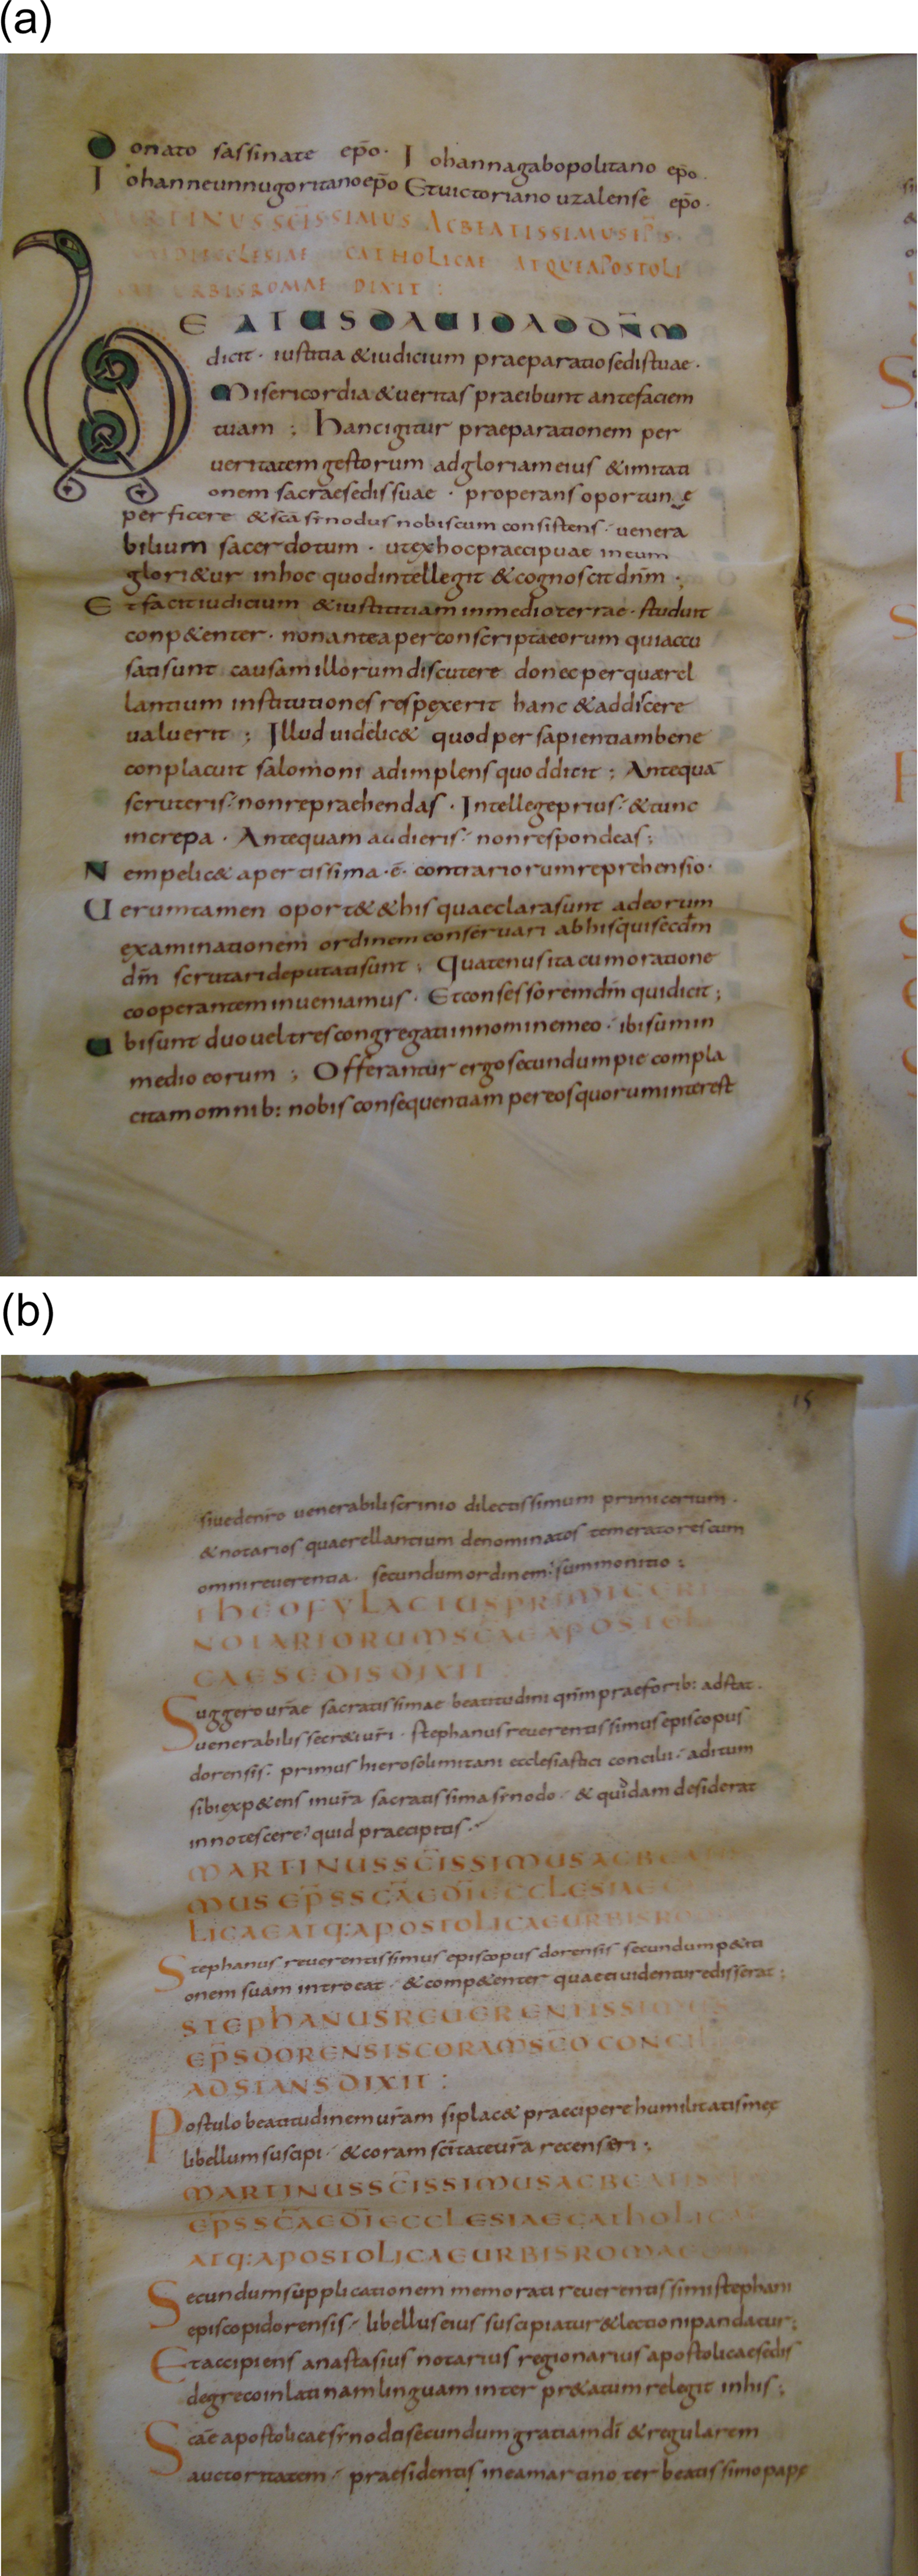 (a)
Donato sassinate ep̄o· Iohannagabopolitano ep̄o·
Iohanneunnugoritanoep̄o Etuictoriano uzalense ep̄o·
MARTINUS SC̄ISSIMUS ACBEATISSIMUS
ECLESIAE CATHOLICAE ATQUEAPOSTOLI
URBISROMAE DIXIT :
BEATUSDAUIDADDN̄M
dicit· iustitia &iudicium praeparatiosedistuae·
Misericordia&ueritas praeibunt antefaciem
tuam ; Hancigitur praeparationem per
ueritatem gestorum adgloriameius &imitati
onem sacraesedissuae · properansoportune
perficere &sc̄a sinodusnobiscum consistens· uenera
bilium sacerdotum · utexhocpraecipuae ineum
glori&ur inhoc quodintellegit &cognoscit dn̄m ·
Etfacitiudicium &iustititiam inmedioterrae· studuit
conp&enter· nonanteaperconscriptaeorum quiaccu
satisunt causamillorumdiscutere donecperquærel
lantium institutiones respexerit hanc &addiscere
ualuerit ; Illud uidelic& quodpersapientiambene
conplacuit salomoni adimplensquoddicit ; Antequā
scruteris· nonrepraehendas · Intellegeprius· &tunc
increpa · Antequam audieris· nonrespondeas;
Nempelic& apertissima·ē· contrariorumreprehensio·
Uerumtamen oport& &his quaeclarasunt adeorum
examinationem ordinem conseruari abhisquisecdm̄
dm̄ scrutarideputatisunt ; Quatenusita cumoratione
cooperantem inueniamus· Etconfessoremdm̄ quidicit;
Ubisunt duoueltrescongregatiinnominemeo· ibisumin
medio eorum ; Offerantur ergosecundumpie compla
citamomnib: nobisconsequentiam pereosquoruminterest
(b)
15
siuedenr̄o uenerabiliscrinio dilectissimum primicerium·
&notarios quaerellantium denominatos temeratorescum
omnireuerentia· secundumordinem· summonitio :
THEOFYLACTUSPRIMICERI
NOTARIORUMSC̄AEAPOSTOL
CAESEDISDIXIT
Suggerour̄ae sacratissimae beatitudini qn̄mpraeforib: adstat·
uenerabilissecr&iur̄i · stephanusreuerentissimusepiscopus
dorensis· primus hierosolimitani ecclesiastici concilii· aditum
sibiexp&ens inur̄a sacratissimasinodo· & quidam desiderat
innotescere· quid praecipitis·
MARTINUSSC̄ISSIMUSACBEATIS
MUS EP̄SSC̄AEDĪECCLESIAE
LICAEATQ:APOSTOLICAEURBISRO
Stephanus reuerentissimus episcopus dorensis secundump&iti
onem suam introeat · &comp&enter quaeeiuidenturedisserat;
STEPHANUSREUERENTISSIMUS
EP̄SDORENSISCORAMSC̄O CONCIL
ADSTANSDIXIT :
Postulo beatitudinemur̄am siplac& praecipere humilitatismee
libellumsuscipi· &coram sc̄itateur̄a recenseri ;
MARTINUSSC̄ISSIMUSACBEATISS
EP̄SSC̄AEDĪECCLESIAECATHOLICA
ATQ:APOSTOLICAEURBISROMAE
Secundumsupplicationem memorati reuerentissimistephani
episcopidorensis· libelluseius suscipiatur&lectionipandatur;
Etaccipiens anastasius notarius regionarius apostolicaesedis
degrecoinlatinamlinguam inter pr&atum relegit inhis;
Sc̄ae apostolicaesinodisecundum gratiamdī & regularem
auctoritatem· praesidentis ineamartino ter beatissimopape